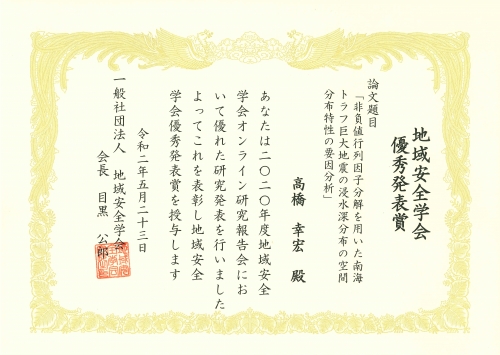 地域安全学会
優秀発表賞
論文題目
「非負値行列因子分解を用いた南海
トラフ巨大地震の浸水深分布の空間
分布特性の要因分析」
高橋 幸宏 殿
あなたは二〇二〇年度地域安全
学会オンライン研究報告会にお
いて優れた研究発表を行いました
よってこれを表彰し地域安全
学会優秀発表賞を授与します
令和二年五月二十三日
一般社団法人 地域安全学会
会長 目黒 公郎